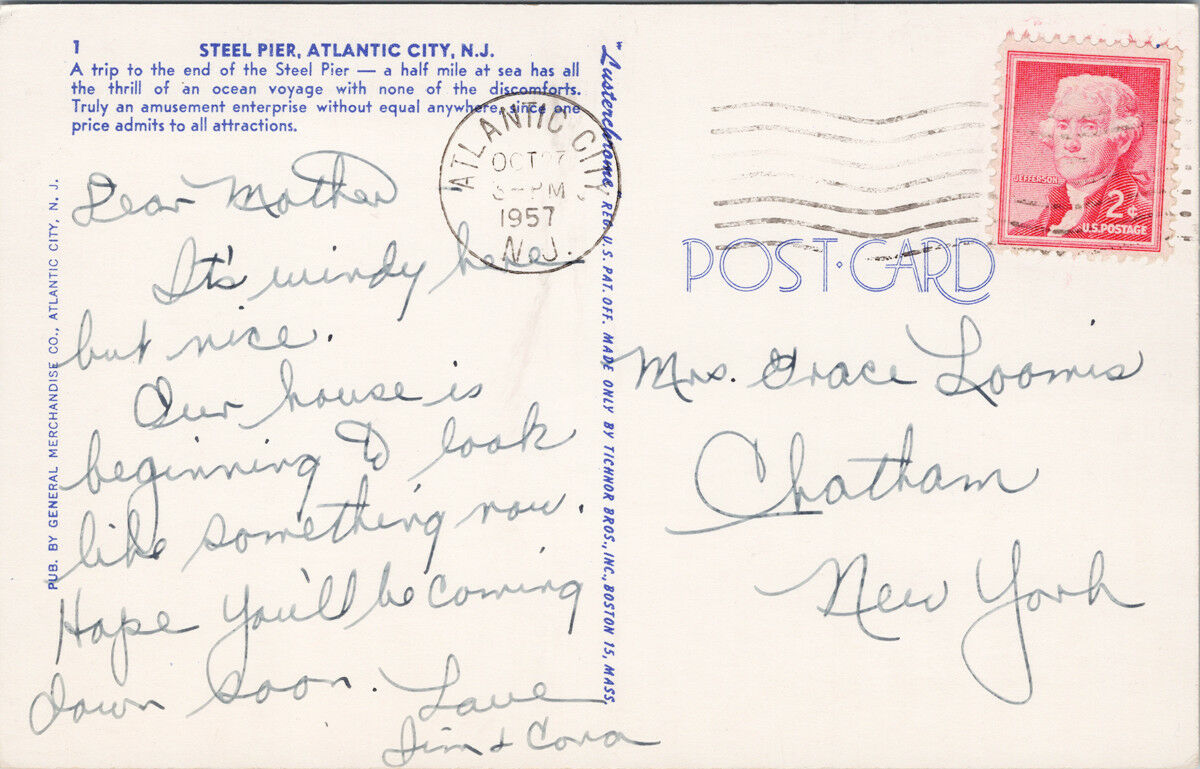 1
STEEL PIER, ATLANTIC CITY, N.J.
A trip to the end of the Steel Pier — a half mile at sea has all
the thrill of an ocean voyage with none of the discomforts.
Truly an amusement enterprise without equal anywhere, since one
price admits to all attractions.
PUB. BY GENERAL MERCHANDISE CO., ATLANTIC CITY, N. J.
Dear Mother
It's windy here
but nice.
Our house is
beginning to look
like something now.
Hope you'll be coming
down soon. Love
Jim & Cora
"Lusterchrome" REG. U.S. PAT. OFF. MADE ONLY BY TICHNOR BROS., INC., BOSTON 15, MASS.
ATLANTIC CITY
OCT 27
PM
1957
N.J.
JEFFERSON
2¢
U.S. POSTAGE
POST CARD
Mrs. Grace Loomis
Chatham
New York